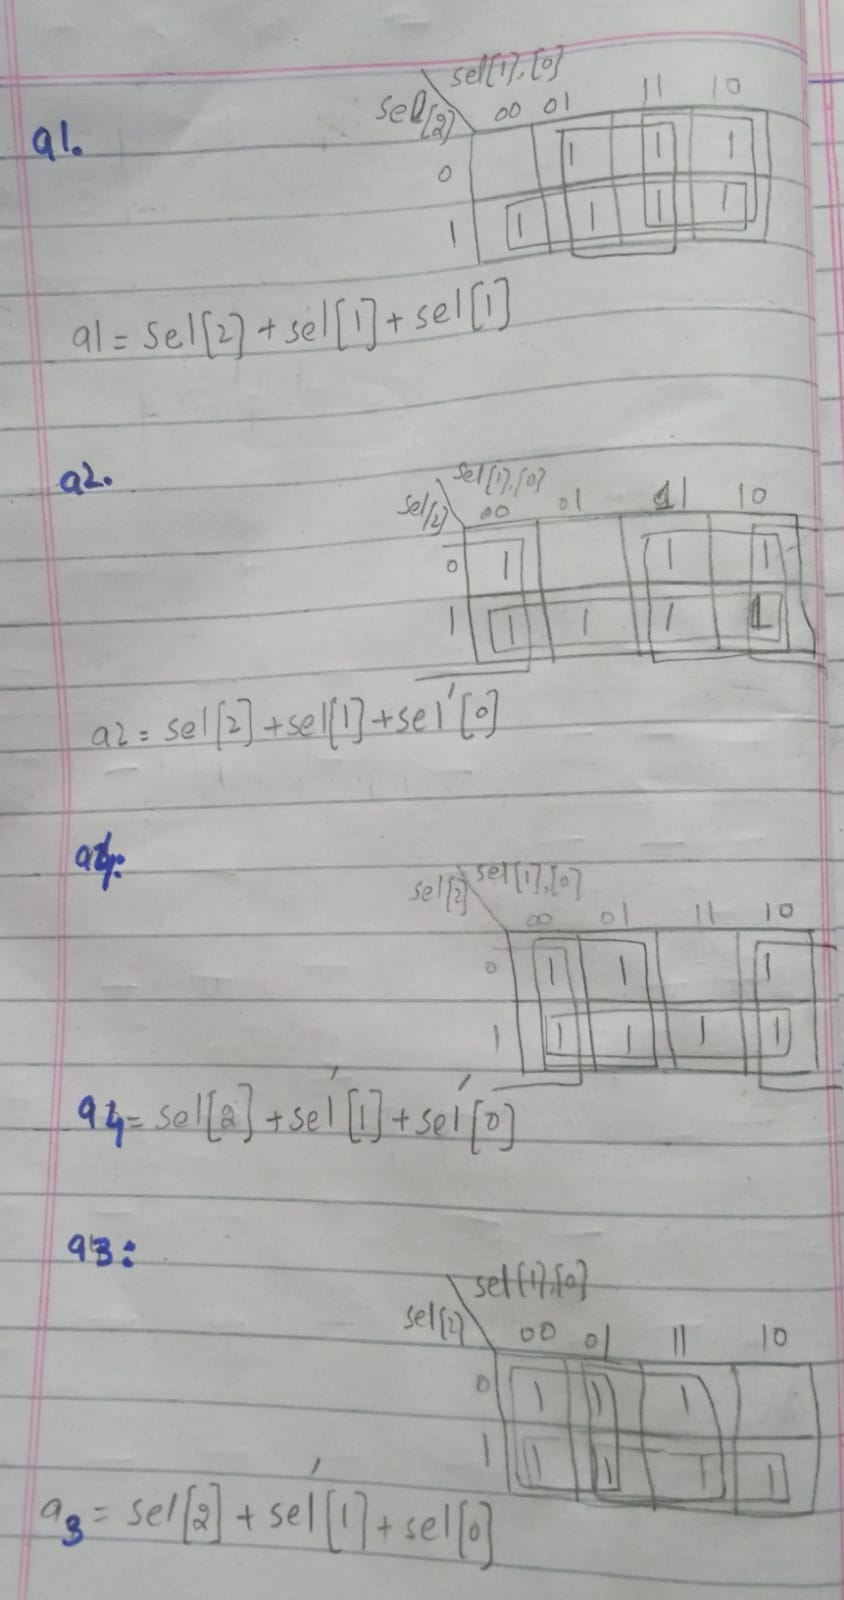 a1.
sel[1],[0]
sel[2] 00 01 11 10
0 1 1 1
1 1 1 1 1
a1 = sel[2] + sel[1] + sel[1]
a2.
sel[1],[0]
sel[2] 00 01 11 10
0 1 1 1
1 1 1 1 1
a2 = sel[2] + sel[1] + sel'[0]
a4:
sel[2] sel[1],[0]
00 01 11 10
0 1 1 1
1 1 1 1 1
a4 = sel[2] + sel'[1] + sel'[0]
a3:
sel[1],[0]
sel[2] 00 01 11 10
0 1 1 1
1 1 1 1 1
a3 = sel[2] + sel'[1] + sel[0]